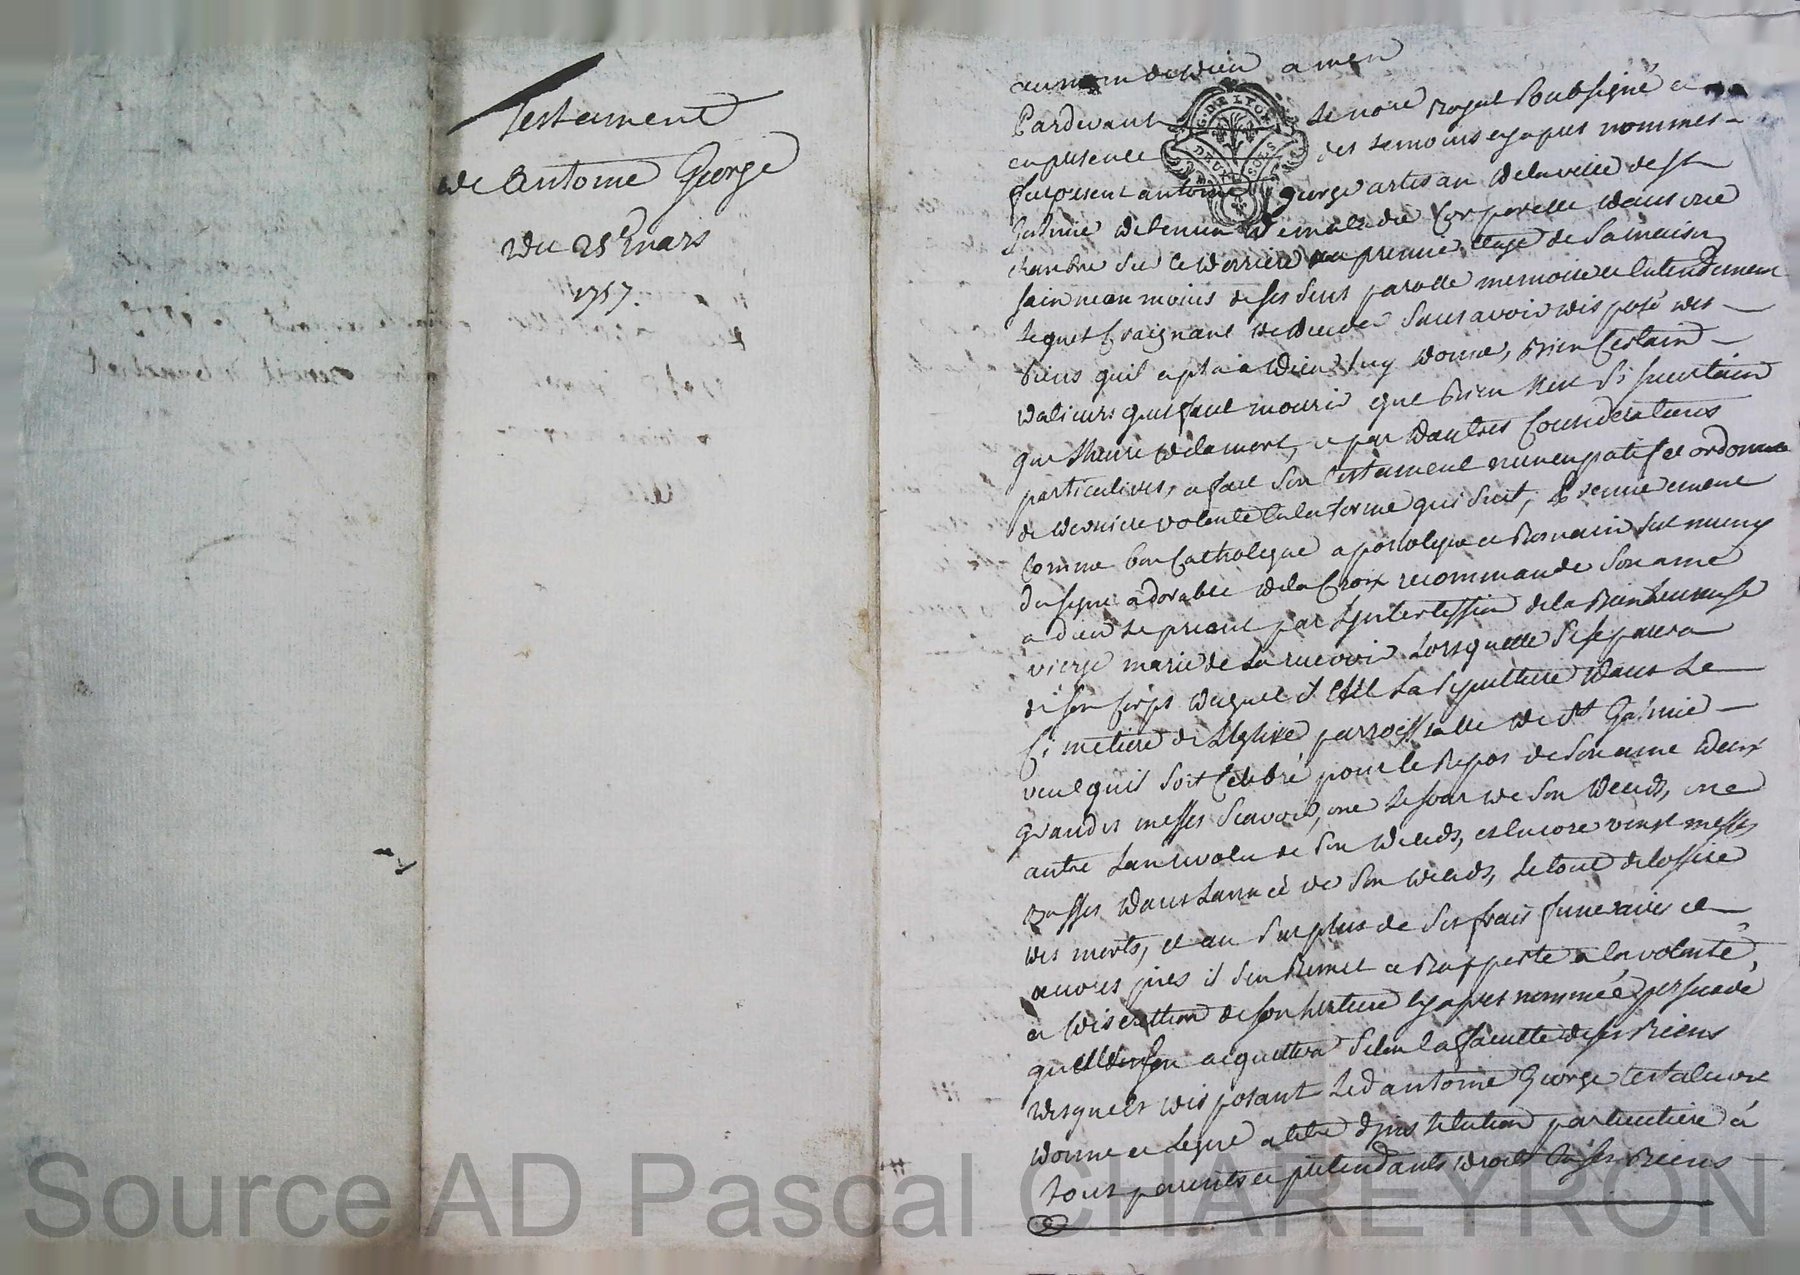 Testament
de Antoine George
du 28e mars
1757.
au nom de dieu amen
Pardevant le nore Royal Soubsigné et
en presence des temoins cy apres nommes
fut present antoine George artisan de la ville de st
Galmier detenu de maladie Corporelle dans une
chambre sur le derriere au premier etage de sa maison
sain neanmoins de ses sens parolle memoire et Entendement
lequel Craignant de deceder sans avoir disposé des
biens quil a plu a dieu luy donner, Bien Certain
dallieurs quil faut mourir que Rien nest si incertain
que lheure de la mort, et par dautres Considerations
particulieres, a fait son testament nuncupatif et ordonnance
de derniere volonté en la forme qui suit, Premierement
Comme bon Catholique apostolique et Romain sest muny
du signe adorable de la Croix recommande son ame
a dieu le priant par Lintercession de la Bienheureuse
vierge marie de La recevoir Lors quelle se separera
de son Corps duquel il Elit La sepulture dans Le
Cimetiere de Leglise parroissialle de st Galmier
veut quil soit Celebré pour le Repos de son ame deux
grandes messes scavoir, une Le jour de son deceds, une
autre Lan revolu de son deceds, et Encore vingt messes
Basses dans Lannee de son deceds, Le tout de loffice
des morts, et au surplus de ses frais funeraires et
œuvres pies il sen Remet et Rapporte a la volonté,
et discretion de son heritiere cy apres nommée, persuadé
quelle sen acquittera selon la faculté de ses Biens
desquels disposant Led antoine George testateur
donne et Legue a titre dinstitution particuliere á
tous parents et pretendants droit En ses Biens
G. DE LYON
DEUX SOLS
Source AD Pascal CHAREYRON